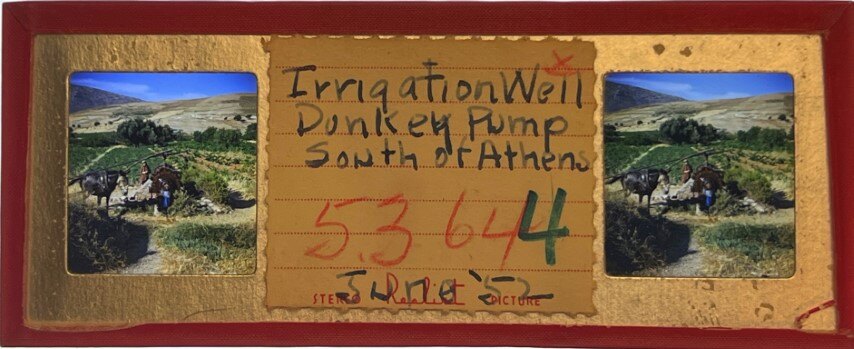 Irrigation Well
Donkey Pump
South of Athens
5.3 64 4
June '52
STEREO Realist PICTURE